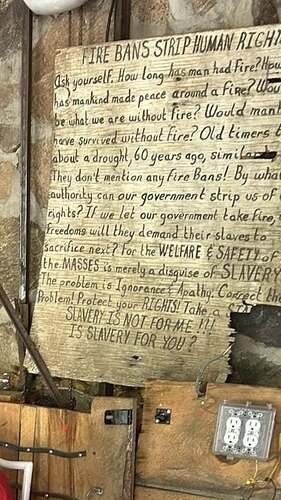 FIRE BANS STRIP HUMAN RIGHT
Ask yourself. How long has man had Fire? How
has mankind made peace around a Fire? Wou
be what we are without fire? Would mank
have survived without fire? Old timers t
about a drought, 60 years ago, similar
They don't mention any Fire Bans! By what
authority can our government strip us of
rights? If we let our government take fire,
Freedoms will they demand their slaves to
sacrifice next? For the WELFARE & SAFETY of
the MASSES is merely a disguise of SLAVERY
The problem is Ignorance & Apathy. Correct the
Problem! Protect your RIGHTS! Take a
SLAVERY IS NOT FOR ME !?!
IS SLAVERY FOR YOU ?